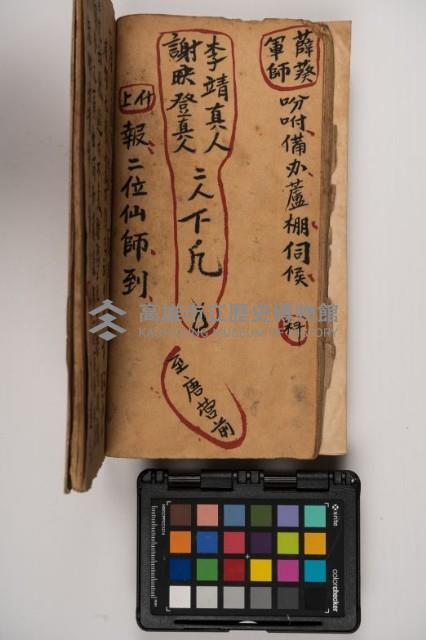 薛葵
軍師
吩咐備办蘆棚伺候
科
李靖真人
謝映登真人
二人下凢
至唐营前
什上
報二位仙師到
高雄市立歷史博物館
KAOHSIUNG MUSEUM OF HISTORY
x-rite
colorchecker